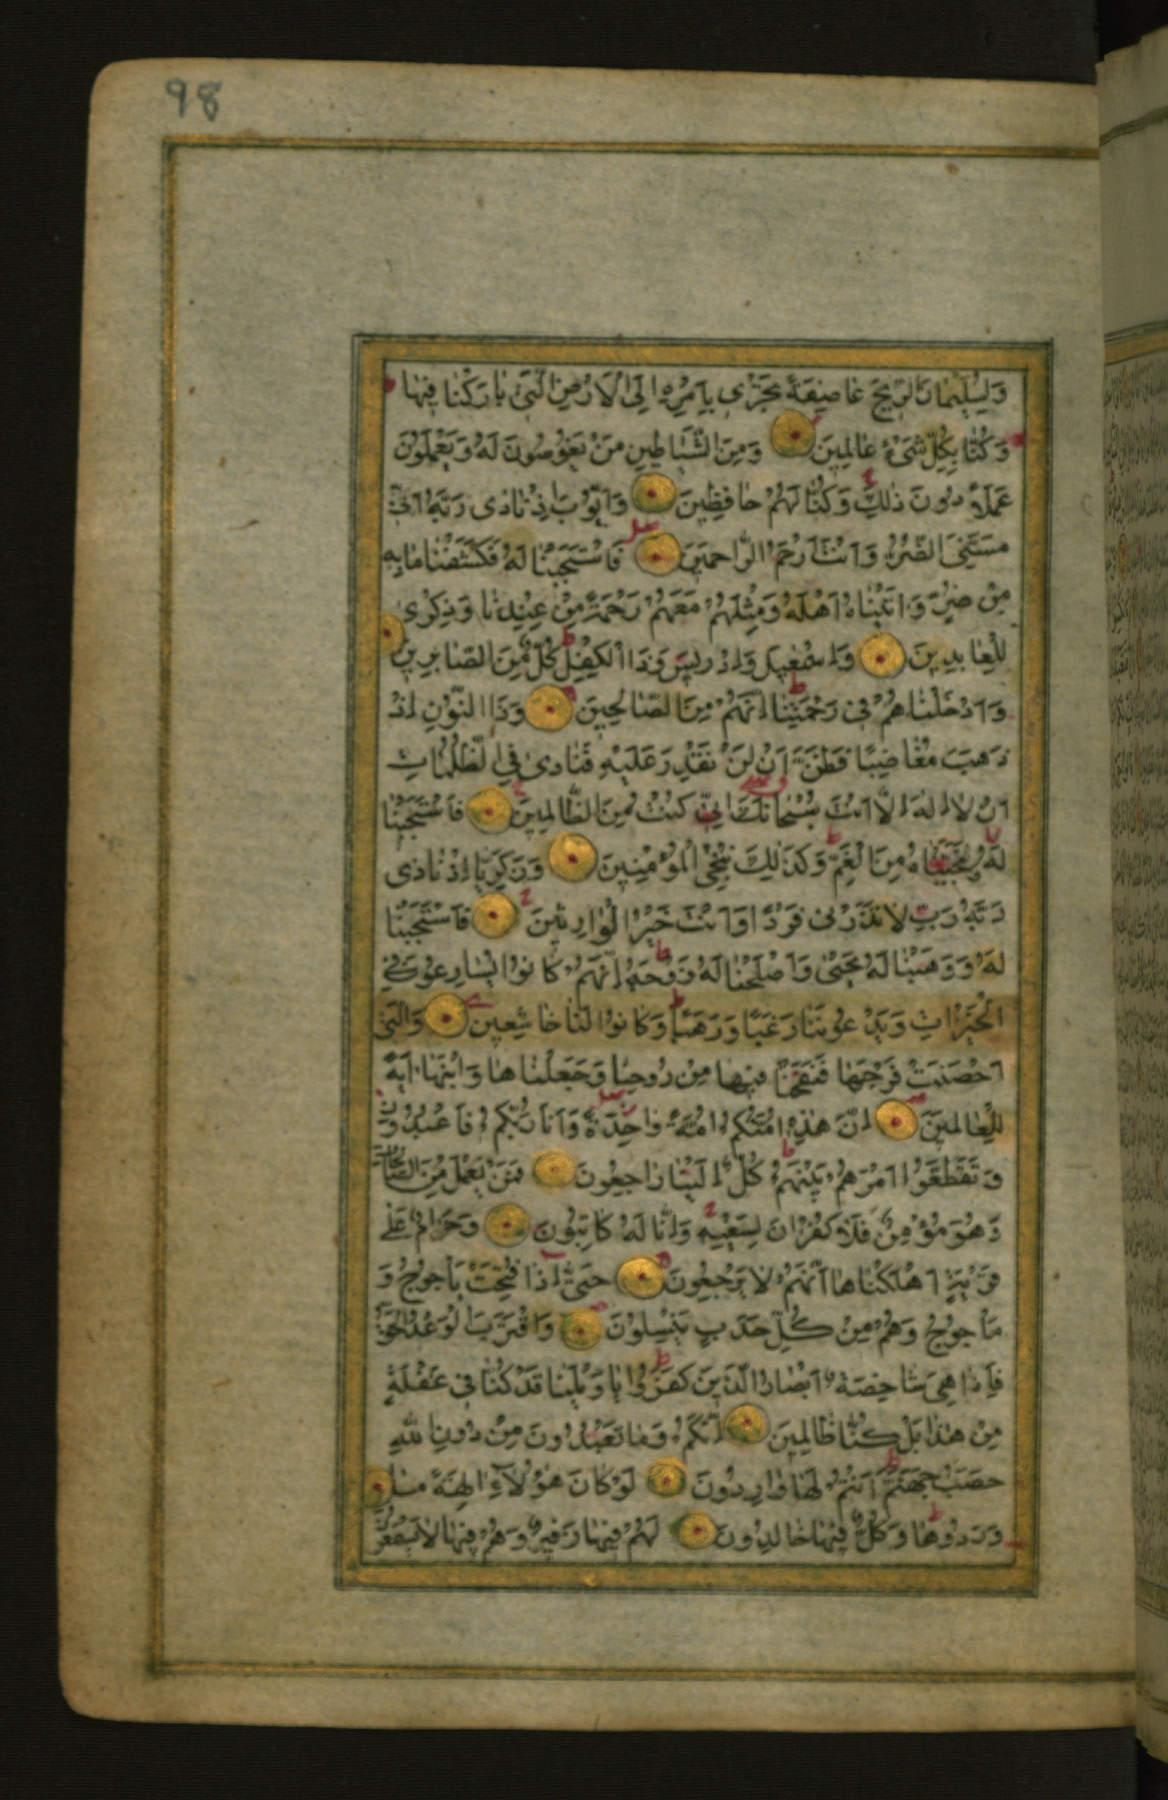 98
وَلِسُلَيْمَانَ الرِّيحَ عَاصِفَةً تَجْرِي بِأَمْرِهِ إِلَى الْأَرْضِ الَّتِي بَارَكْنَا فِيهَا
وَكُنَّا بِكُلِّ شَيْءٍ عَالِمِينَ وَمِنَ الشَّيَاطِينِ مَنْ يَغُوصُونَ لَهُ وَيَعْمَلُونَ
عَمَلًا دُونَ ذَلِكَ وَكُنَّا لَهُمْ حَافِظِينَ وَأَيُّوبَ إِذْ نَادَى رَبَّهُ أَنِّي
مَسَّنِيَ الضُّرُّ وَأَنْتَ أَرْحَمُ الرَّاحِمِينَ فَاسْتَجَبْنَا لَهُ فَكَشَفْنَا مَا بِهِ
مِنْ ضُرٍّ وَآتَيْنَاهُ أَهْلَهُ وَمِثْلَهُمْ مَعَهُمْ رَحْمَةً مِنْ عِنْدِنَا وَذِكْرَى
لِلْعَابِدِينَ وَإِسْمَعِيلَ وَإِدْرِيسَ وَذَا الْكِفْلِ كُلٌّ مِنَ الصَّابِرِينَ
وَأَدْخَلْنَاهُمْ فِي رَحْمَتِنَا إِنَّهُمْ مِنَ الصَّالِحِينَ وَذَا النُّونِ إِذْ
ذَهَبَ مُغَاضِبًا فَظَنَّ أَنْ لَنْ نَقْدِرَ عَلَيْهِ فَنَادَى فِي الظُّلُمَاتِ
أَنْ لَا إِلَهَ إِلَّا أَنْتَ سُبْحَانَكَ إِنِّي كُنْتُ مِنَ الظَّالِمِينَ فَاسْتَجَبْنَا
لَهُ وَنَجَّيْنَاهُ مِنَ الْغَمِّ وَكَذَلِكَ نُنْجِي الْمُؤْمِنِينَ وَزَكَرِيَّا إِذْ نَادَى
رَبَّهُ رَبِّ لَا تَذَرْنِي فَرْدًا وَأَنْتَ خَيْرُ الْوَارِثِينَ فَاسْتَجَبْنَا
لَهُ وَوَهَبْنَا لَهُ يَحْيَى وَأَصْلَحْنَا لَهُ زَوْجَهُ إِنَّهُمْ كَانُوا يُسَارِعُونَ فِي
الْخَيْرَاتِ وَيَدْعُونَنَا رَغَبًا وَرَهَبًا وَكَانُوا لَنَا خَاشِعِينَ وَالَّتِي
أَحْصَنَتْ فَرْجَهَا فَنَفَخْنَا فِيهَا مِنْ رُوحِنَا وَجَعَلْنَاهَا وَابْنَهَا آيَةً
لِلْعَالَمِينَ إِنَّ هَذِهِ أُمَّتُكُمْ أُمَّةً وَاحِدَةً وَأَنَا رَبُّكُمْ فَاعْبُدُونِ
وَتَقَطَّعُوا أَمْرَهُمْ بَيْنَهُمْ كُلٌّ إِلَيْنَا رَاجِعُونَ فَمَنْ يَعْمَلْ مِنَ الصَّالِحَاتِ
وَهُوَ مُؤْمِنٌ فَلَا كُفْرَانَ لِسَعْيِهِ وَإِنَّا لَهُ كَاتِبُونَ وَحَرَامٌ عَلَى
قَرْيَةٍ أَهْلَكْنَاهَا أَنَّهُمْ لَا يَرْجِعُونَ حَتَّى إِذَا فُتِحَتْ يَأْجُوجُ وَ
مَأْجُوجُ وَهُمْ مِنْ كُلِّ حَدَبٍ يَنْسِلُونَ وَاقْتَرَبَ الْوَعْدُ الْحَقُّ
فَإِذَا هِيَ شَاخِصَةٌ أَبْصَارُ الَّذِينَ كَفَرُوا يَا وَيْلَنَا قَدْ كُنَّا فِي غَفْلَةٍ
مِنْ هَذَا بَلْ كُنَّا ظَالِمِينَ إِنَّكُمْ وَمَا تَعْبُدُونَ مِنْ دُونِ اللَّهِ
حَصَبُ جَهَنَّمَ أَنْتُمْ لَهَا وَارِدُونَ لَوْ كَانَ هَؤُلَاءِ آلِهَةً مَا
وَرَدُوهَا وَكُلٌّ فِيهَا خَالِدُونَ لَهُمْ فِيهَا زَفِيرٌ وَهُمْ فِيهَا لَا يَسْمَعُونَ